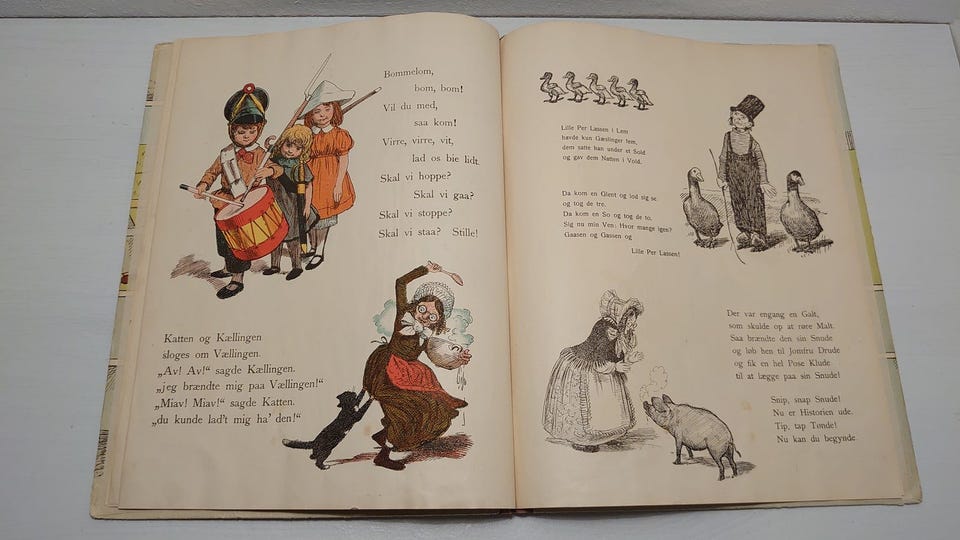 Bommelom,
bom, bom!
Vil du med,
saa kom!
Virre, virre, vit,
lad os bie lidt.
Skal vi hoppe?
Skal vi gaa?
Skal vi stoppe?
Skal vi staa? Stille!
Katten og Kællingen
sloges om Vællingen.
„Av! Av!“ sagde Kællingen.
„jeg brændte mig paa Vællingen!“
„Miav! Miav!“ sagde Katten.
„du kunde lad't mig ha' den!“
Lille Per Lassen i Lem
havde kun Gæslinger fem,
dem satte han under et Sold
og gav dem Natten i Vold.
Da kom en Glent og lod sig se
og tog de tre.
Da kom en So og tog de to.
Sig nu min Ven: Hvor mange igen?
Gaasen og Gassen og
Lille Per Lassen!
Der var engang en Galt,
som skulde op at røre Malt.
Saa brændte den sin Snude
og løb hen til Jomfru Drude
og fik en hel Pose Klude
til at lægge paa sin Snude!
Snip, snap Snude!
Nu er Historien ude.
Tip, tap Tønde!
Nu kan du begynde.